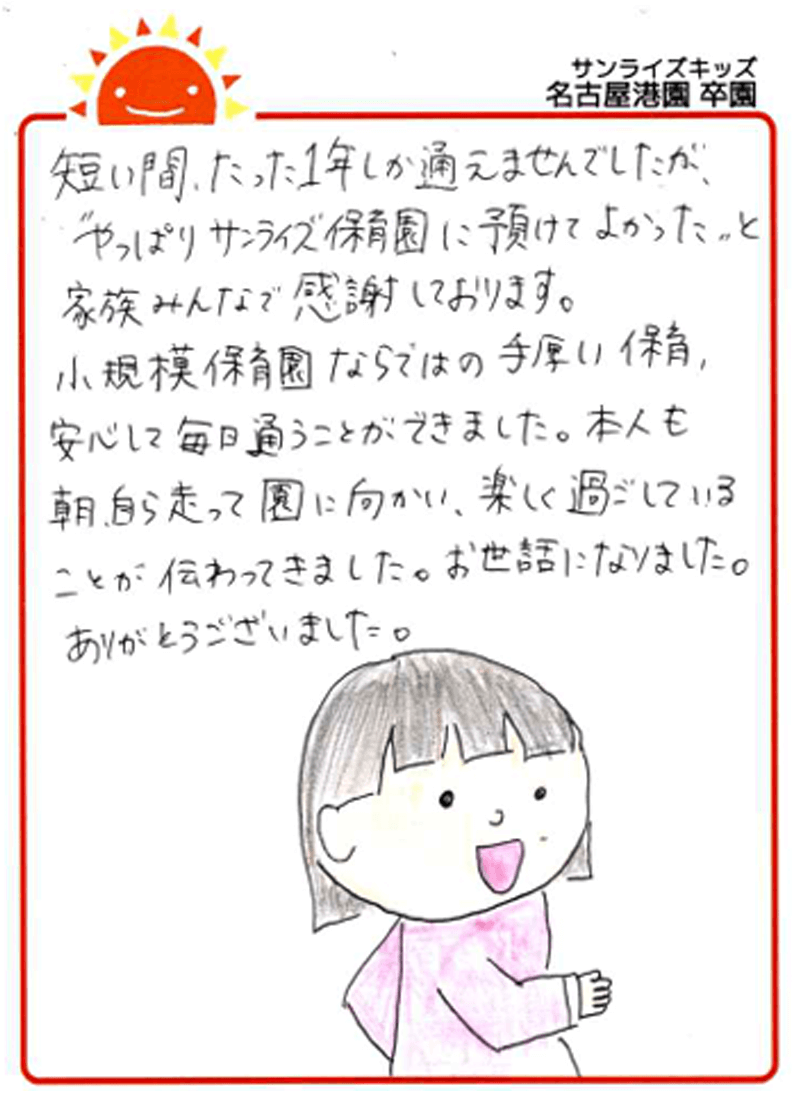 サンライズキッズ
名古屋港園 卒園
短い間、たった1年しか通えませんでしたが、
“やっぱりサンライズ保育園に預けてよかった„と
家族みんなで感謝しております。
小規模保育園ならではの手厚い保育、
安心して毎日通うことができました。本人も
朝、自ら走って園に向かい、楽しく過ごしている
ことが伝わってきました。お世話になりました。
ありがとうございました。